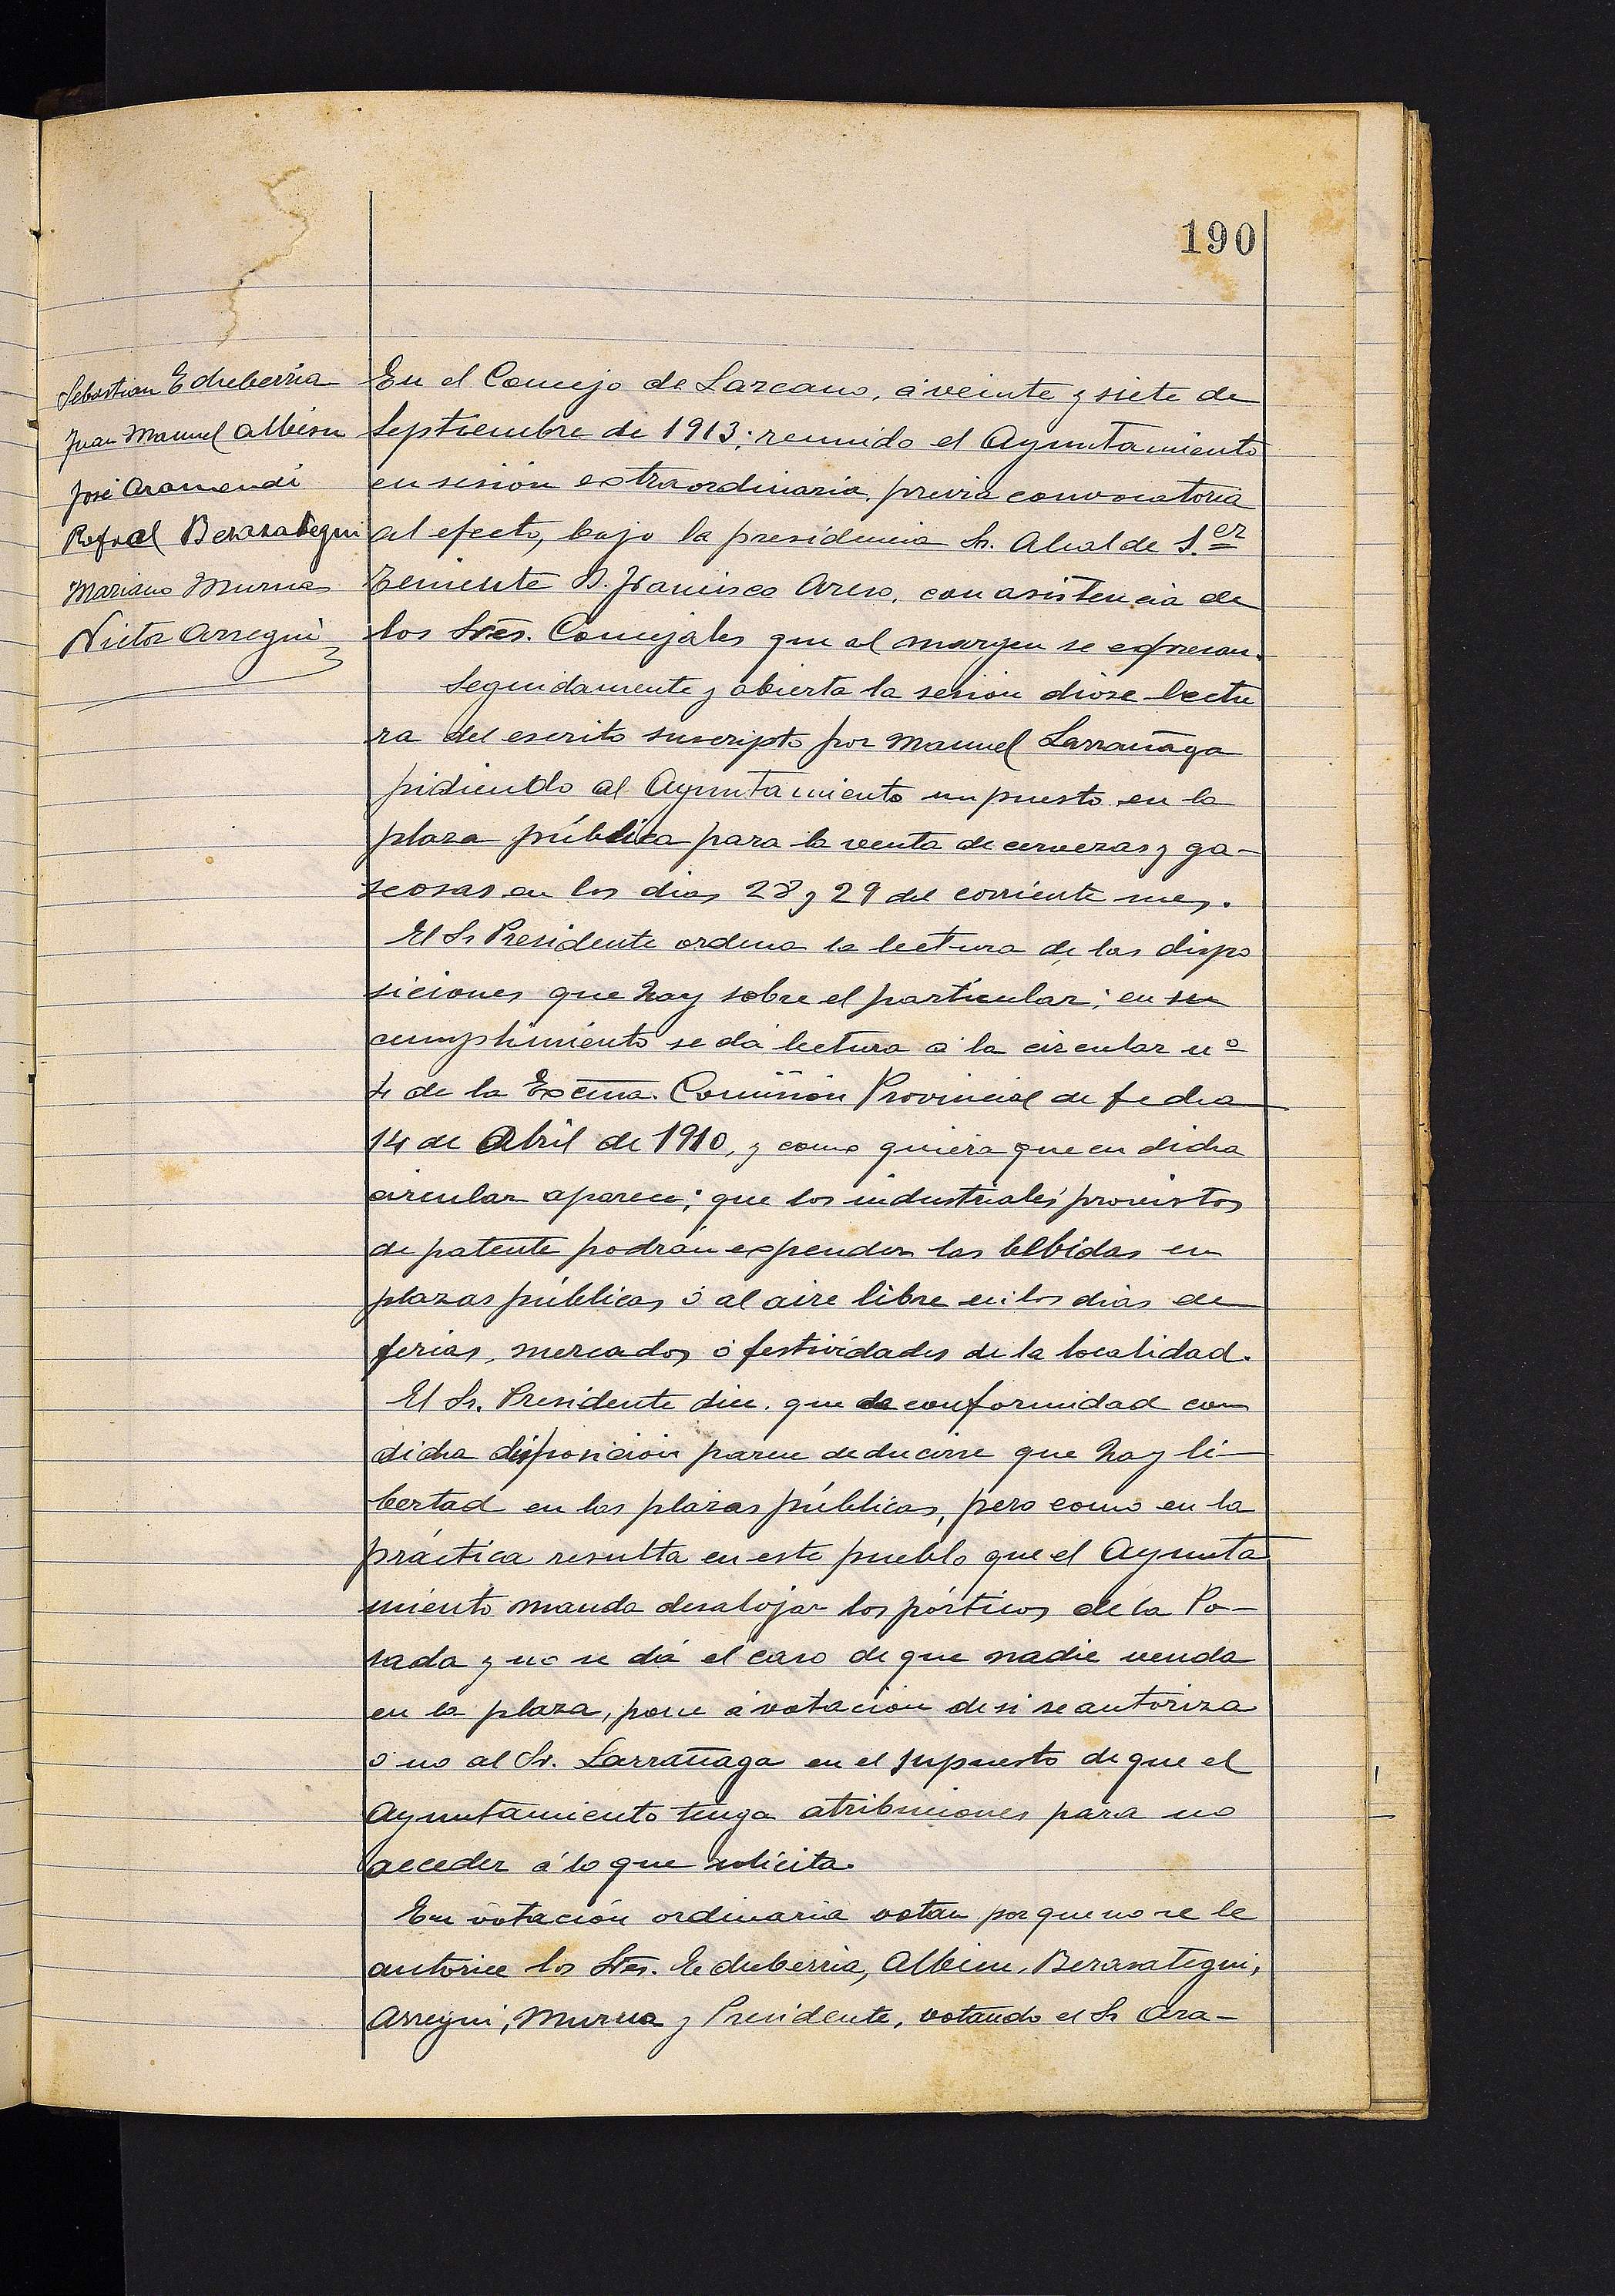 190
Sebastian Echeberria
Juan Manuel Albisu
José Aramendi
Rafael Berasategui
Mariano Murua
Victor Arregui
En el Concejo de Lazcano, á veinte y siete de
Septiembre de 1913; reunido el Ayuntamiento
en sesión extraordinaria, previa convocatoria
al efecto, bajo la presidencia Sr. Alcalde 1.er
Teniente D. Francisco Areso, con asistencia de
los Sres. Concejales que al margen se expresan.
Seguidamente y abierta la sesion dióse lectu
ra del escrito suscripto por Manuel Larrañaga
pidiendo al Ayuntamiento un puesto en la
plaza pública para la venta de cervezas y ga-
seosas en los dias 28 y 29 del corriente mes.
El Sr Presidente ordena la lectura de las dispo
siciones que hay sobre el particular; en su
cumplimiento se dá lectura á la circular nº
4 de la Excma. Comisión Provincial de fecha
14 de Abril de 1910, y como quiera que en dicha
circular aparece; que los industriales provistos
de patente podrán expender las bebidas en
plazas públicas ó al aire libre en los dias de
ferias, mercados ó festividades de la localidad.
El Sr. Presidente dice, que de conformidad con
dicha disposición parece deducirse que hay li-
bertad en las plazas públicas, pero como en la
práctica resulta en este pueblo que el Ayunta
miento manda desalojar los pórticos de la Po-
sada y no se dá el caso de que nadie venda
en la plaza, pone á votación de si se autoriza
ó no al Sr. Larrañaga en el supuesto de que el
Ayuntamiento tenga atribuciones para no
acceder á lo que solicita.
En votación ordinaria votan porque no se le
autorice los Sres. Echeberria, Albisu, Berasategui,
Arregui, Murua y Presidente, votando el Sr Ara-